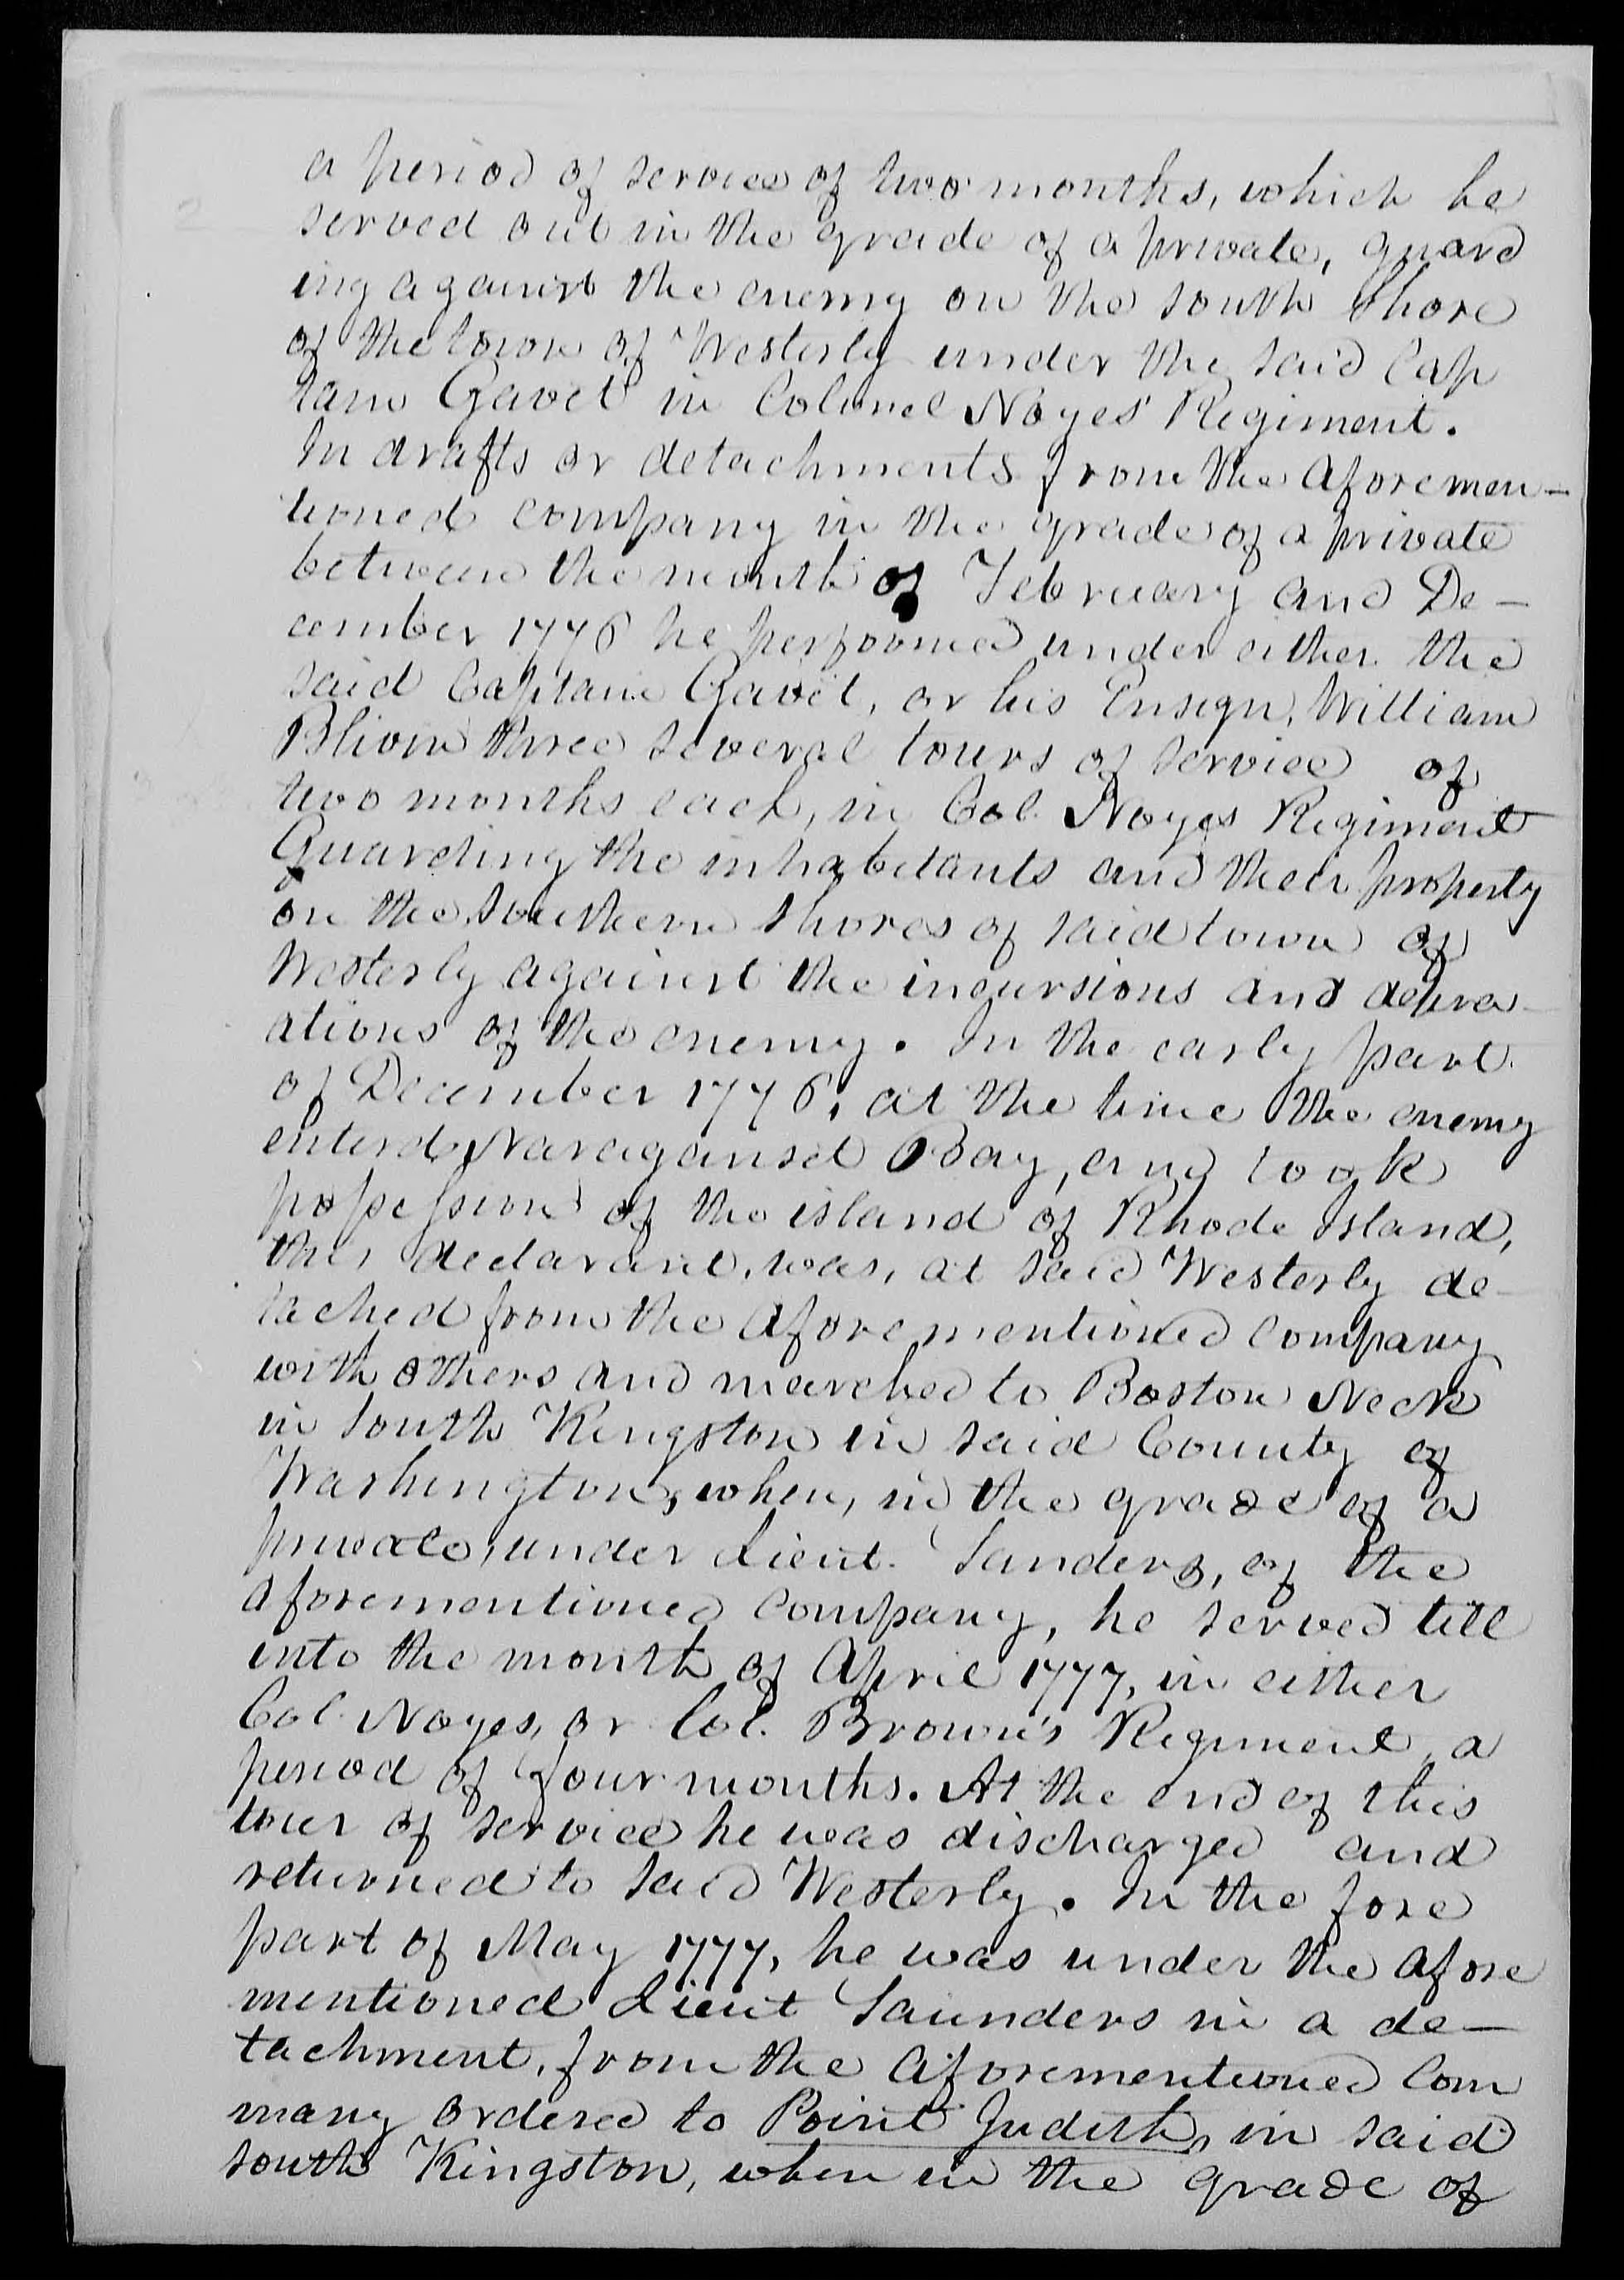 2
a period of service of two months, which he
served out in the grade of a private, guard
ing against the enemy on the south shore
of the town of Westerly under the said Cap
tain Gavet in Colonel Noyes' Regiment.
In drafts or detachments from the aforemen-
tioned company in the grade of a private
between the month of February and De-
cember 1776 he performed under either the
said Captain Gavet, or his Ensign, William
Bliven three several tours of service of
two months each, in Col. Noyes Regiment
Guarding the inhabitants and their property
on the southern shores of said town of
Westerly against the incursions and depra-
ations of the enemy. In the early part
of December 1776, at the time the enemy
enterd Naraganset Bay, and took
possession of the island of Rhode Island,
this declarant, was, at said Westerly de-
tached from the aforementioned company
with others and marched to Boston Neck
in South Kingston in said County of
Washington, when, in the grade of a
private, under Lieut. Sanders, of the
aforementioned company, he served till
into the month of April 1777, in either
Col. Noyes, or Col. Brown's Regiment, a
period of four months. At the end of this
tour of service he was discharged and
returned to said Westerly. In the fore
part of May 1777, he was under the afore
mentioned Lieut Saunders in a de-
tachment, from the aforementioned Com
many ordered to Point Judith, in said
South Kingston, when in the grade of